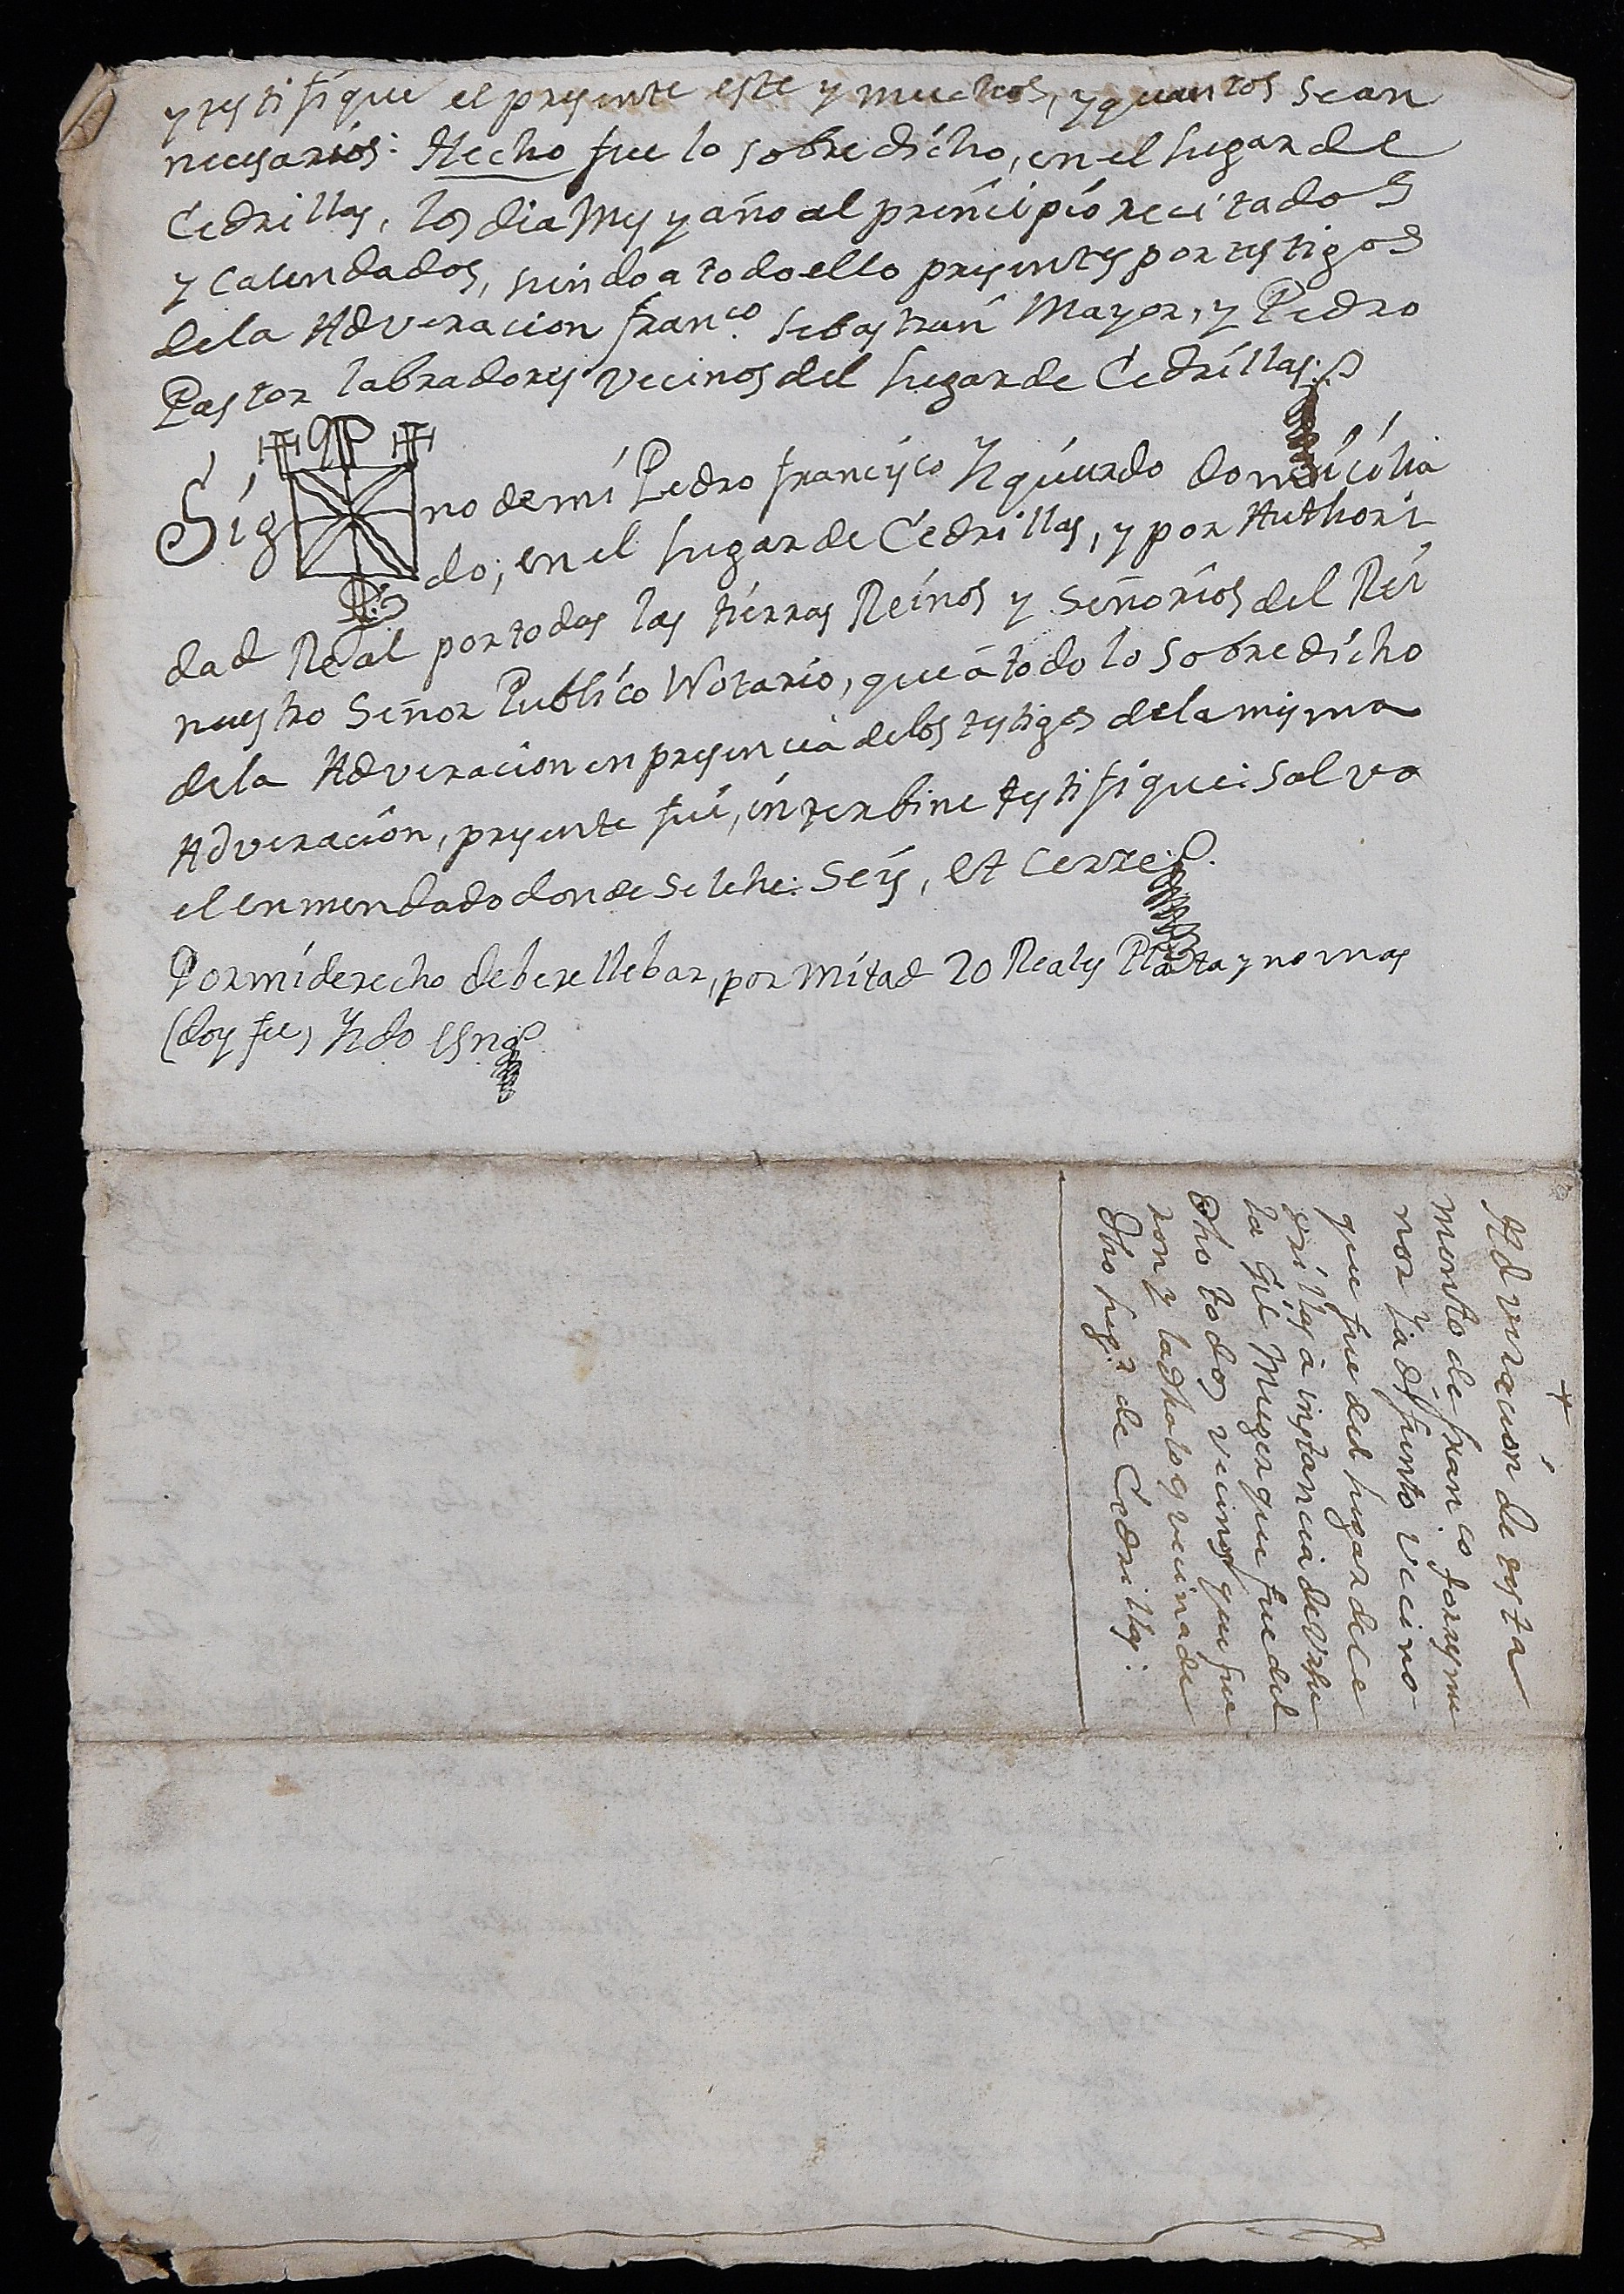 y testifique el presente este y muchos, y quantos sean
necesarios: Hecho fue lo sobredicho, en el Lugar de
Cedrillas, los dia Mes y año al principio recitados
y Calendados, siendo a todo ello presentes por testigos
dela Adveracion fran.co Sebastian Mayor, y Pedro
Pastor labradores vecinos del Lugar de Cedrillas:
Sig no de mi Pedro francisco Yzquierdo domicilia
do, en el Lugar de Cedrillas, y por Authori
dad Real por todas las tierras Reinos y Señorios del Rei
nuestro Señor Publico Notario, que a todo lo sobredicho
dela Adveracion en presencia delos testigos dela misma
Adveracion, presente fui, interbine testifique: salvo
el enmendado donde se lehe: Seis, et cerre:
Por mi derecho debere llebar, por Mitad 20 Reales Plata y no mas
(doy fee) Yzdo
Adveracion de testa
mento de fran.co
nor ya difunto vecino
que fue del Lugar de Ce
drillas a instancia de
la Gil Muger que fue del
dho todos vecinos que fue
ron y la dha vecina de
dho Lug.r de Cedrillas: